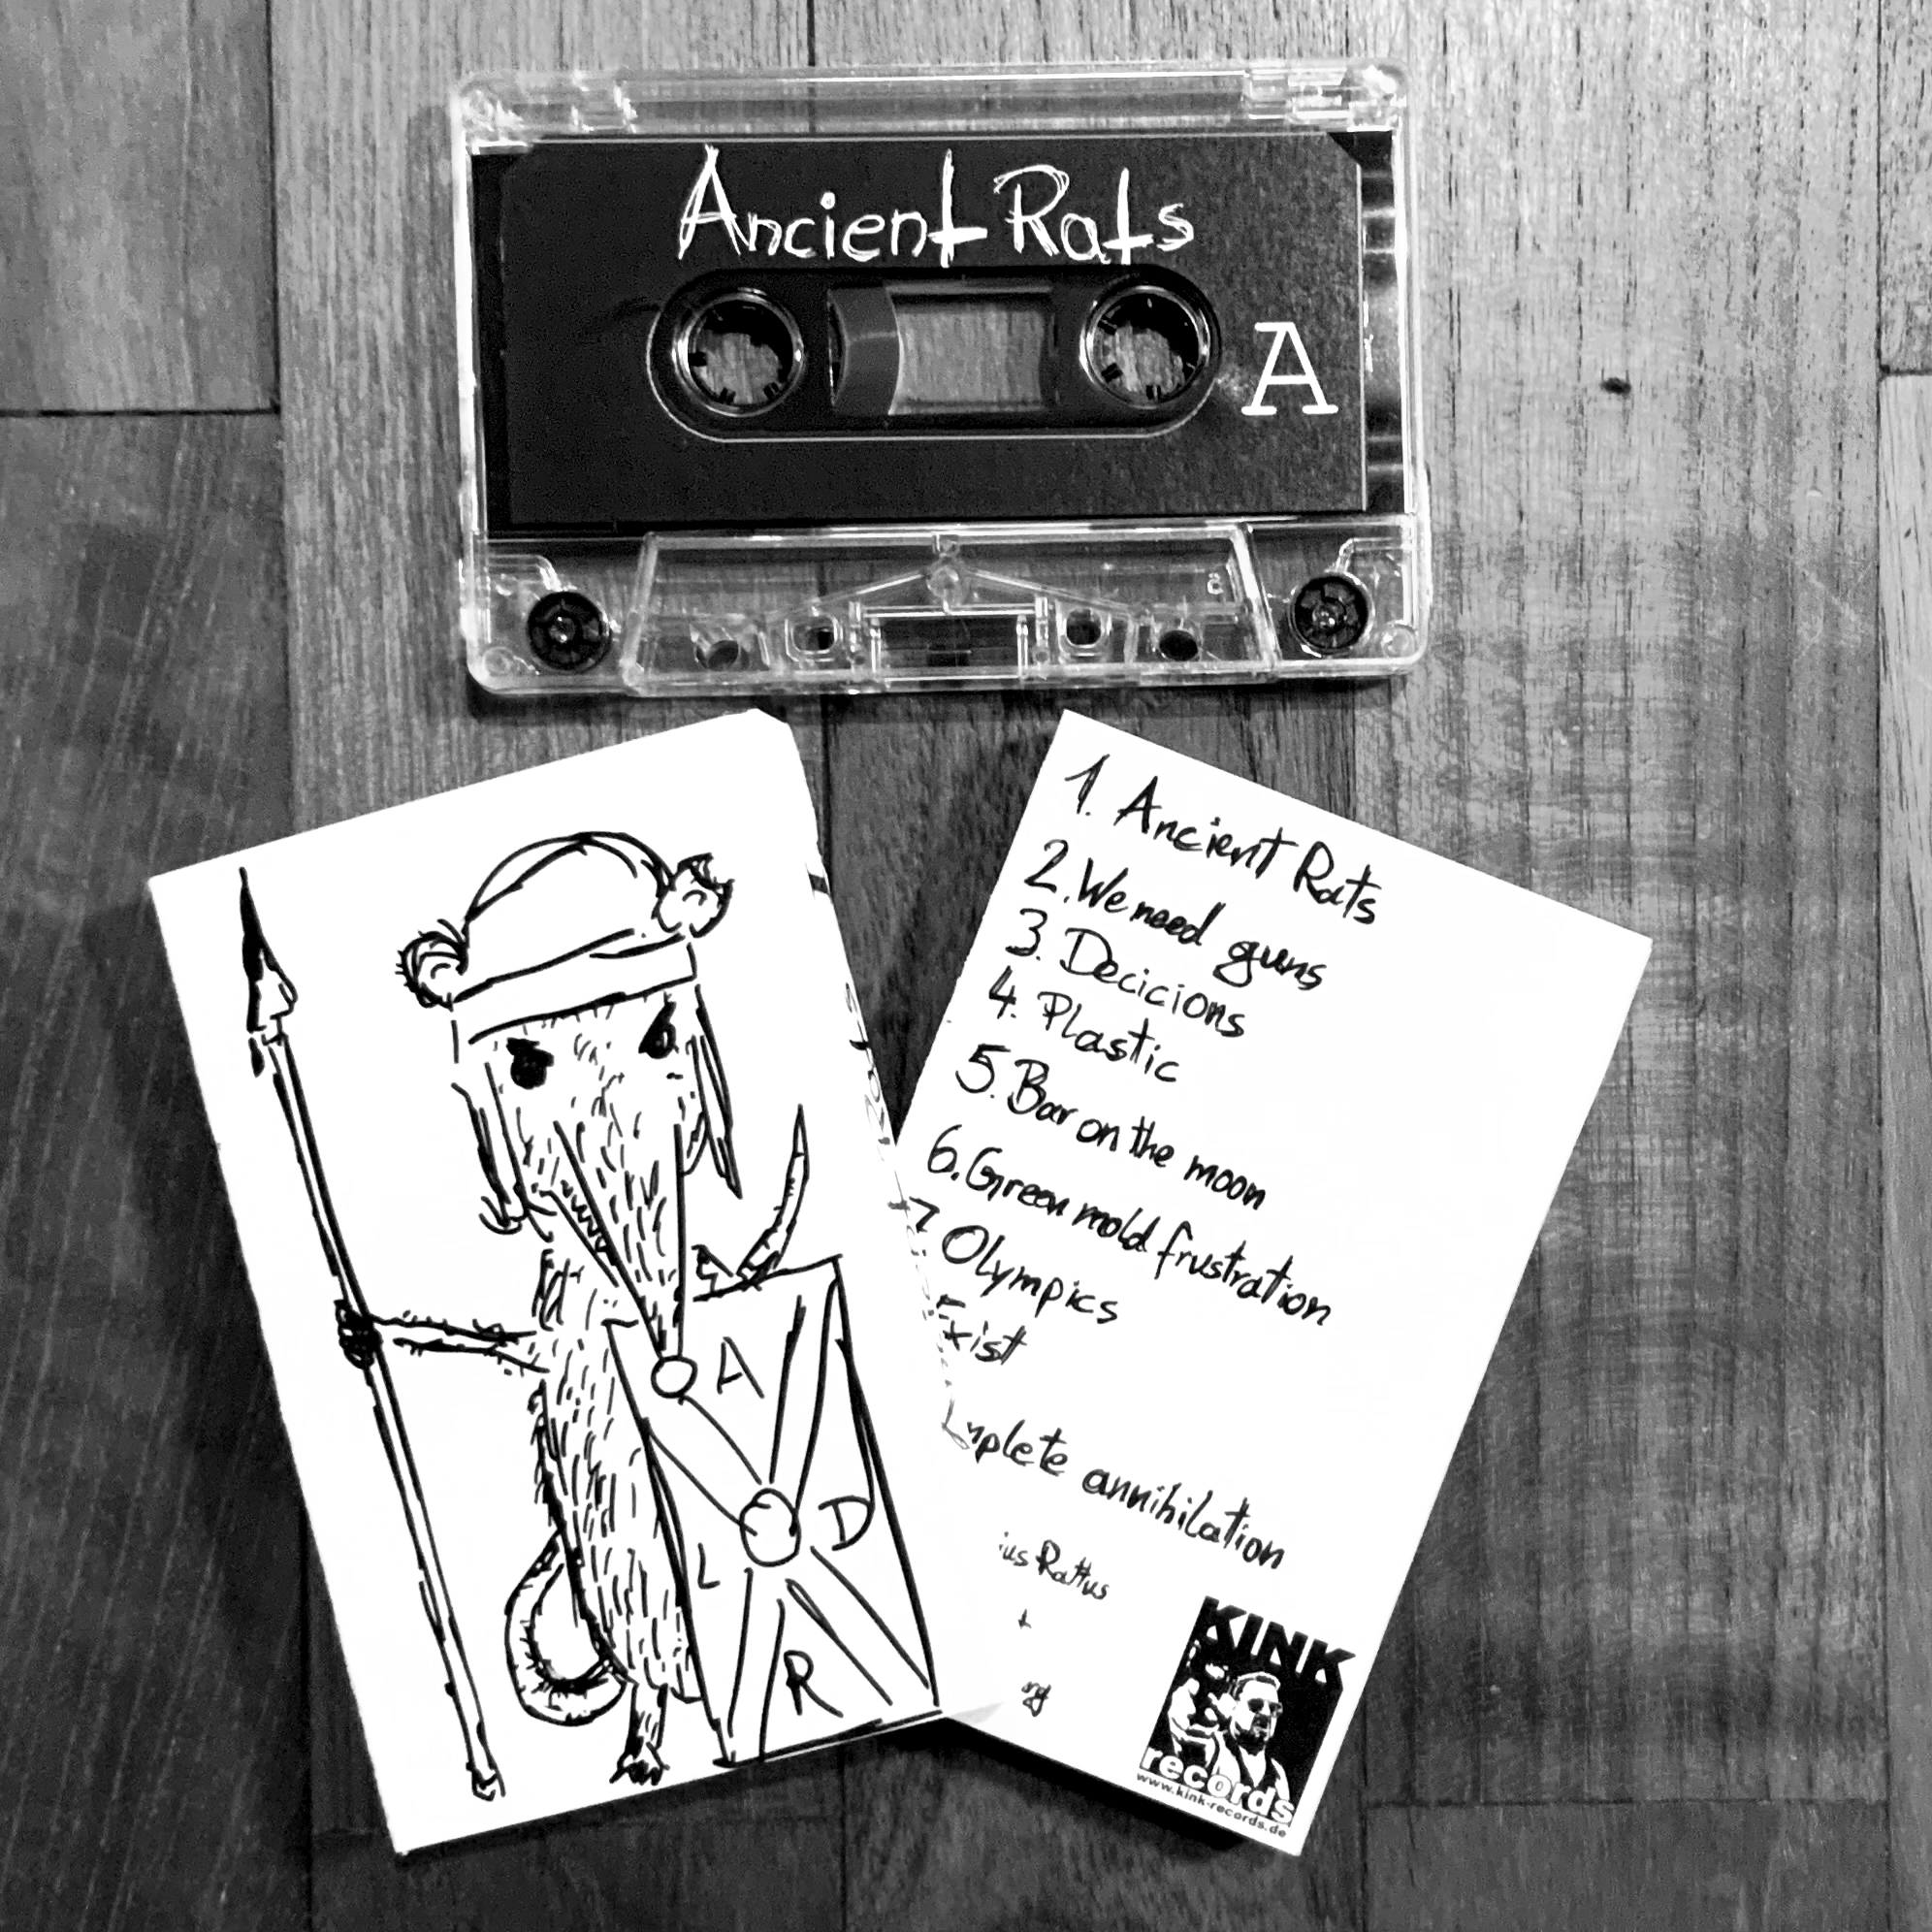 Ancient Rats
A
A
L
D
R
1. Ancient Rats
2. We need guns
3. Decicions
4. Plastic
5. Bar on the moon
6. Green mold frustration
7 Olympics
Exist
annihilation
Rattus
KINK
records
www.kink-records.de